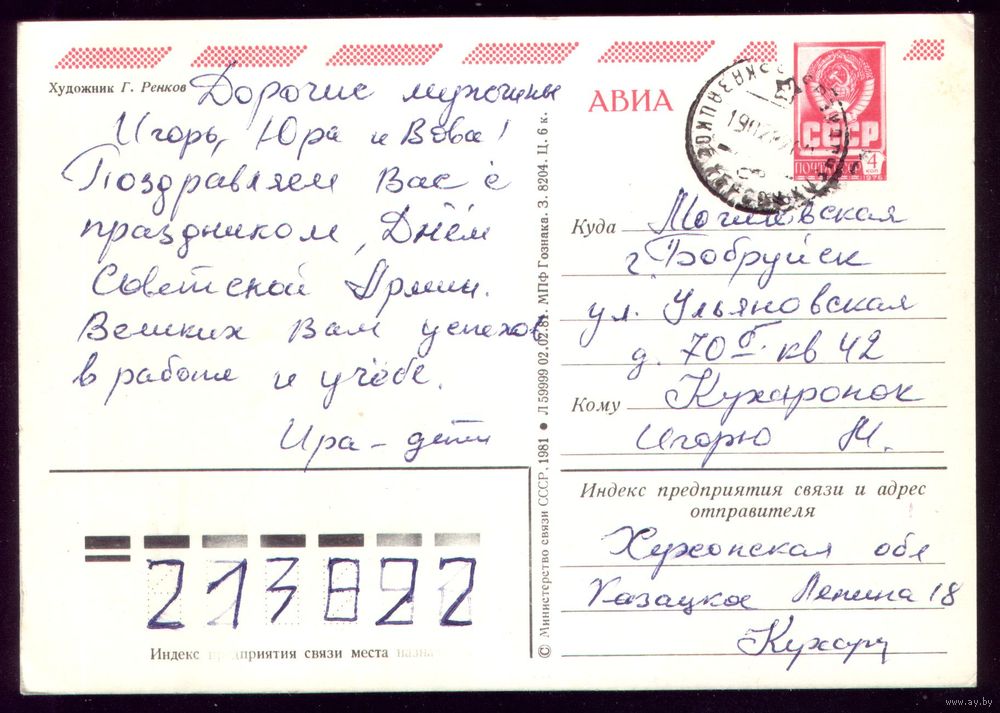 Художник Г. Ренков
Дорогие мужчины
Игорь, Юра и Вова!
Поздравляем Вас с
праздником, Днём
Советской Армии.
Великих Вам успехов
в работе и учёбе.
Ира – дети
Индекс предприятия связи места
213822
© Министерство связи СССР. 1981 ● Л 59999 02.02.81. МПФ Гознака. З. 8204. Ц. 6 к.
АВИА
СССР
ПОЧТА
4 коп
1976
Куда Могилёвская
г. Бобруйск
ул. Ульяновская
д. 70 Б. кв 42
Кому Кухаронок
Игорю М.
Индекс предприятия связи и адрес
отправителя
Херсонская обл
Казацкое Ленина 18
Кухар
www.ay.by